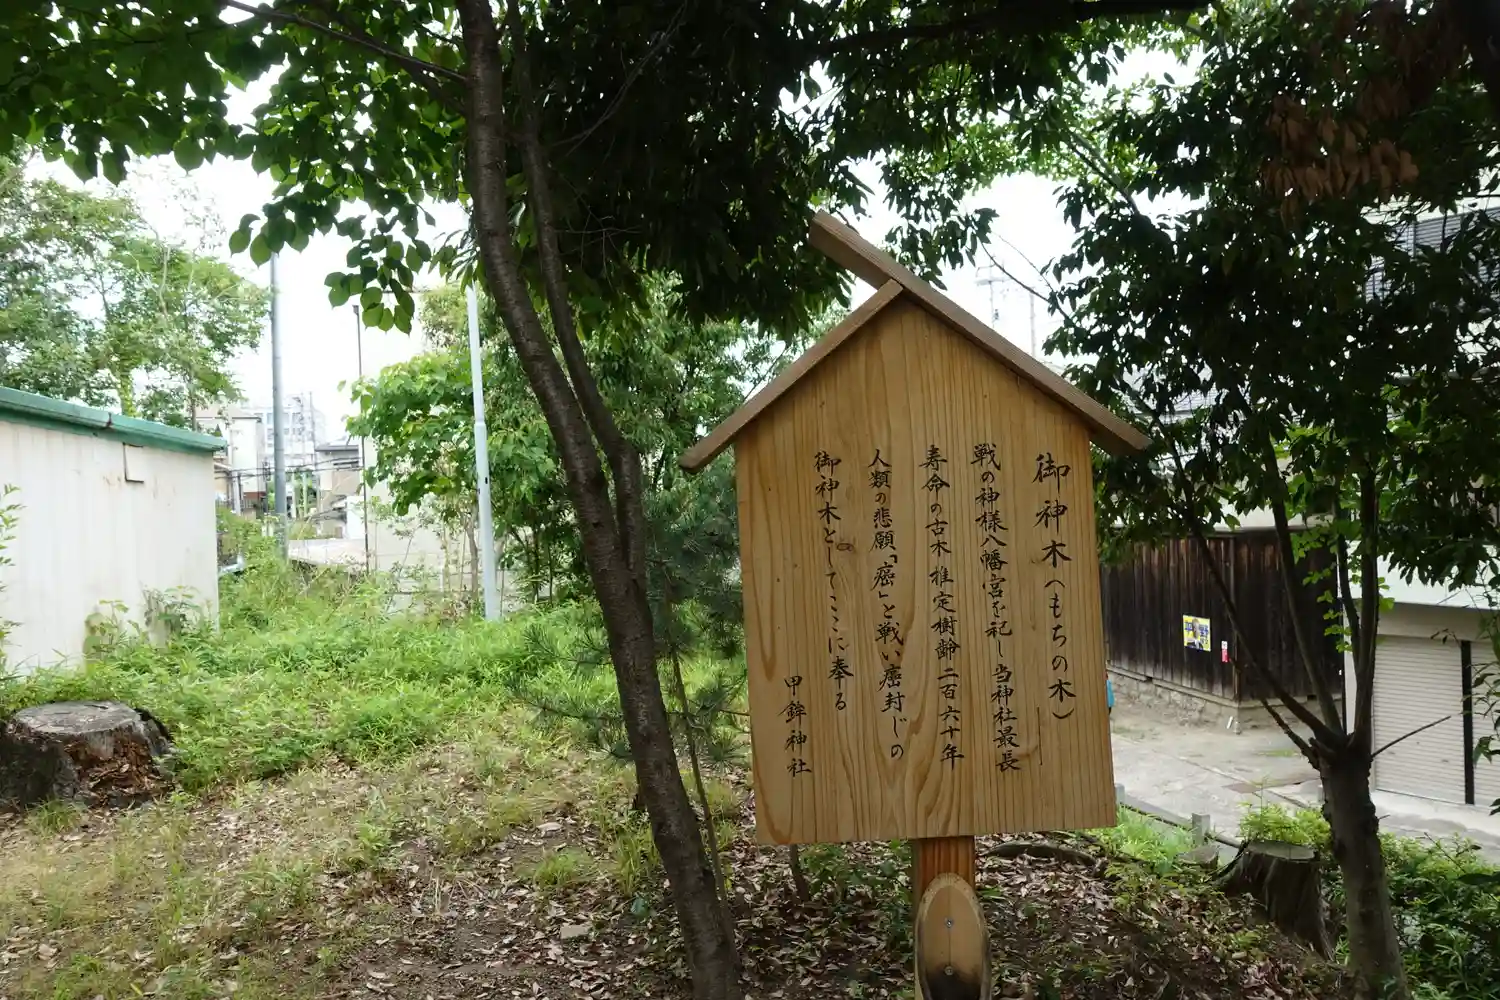 御神木（もちの木）
戦の神様八幡宮を祀し当神社最長
寿命の古木推定樹齢二百六十年
人類の悲願「癌」と戦い癌封じの
御神木としてここに奉る
甲鉾神社